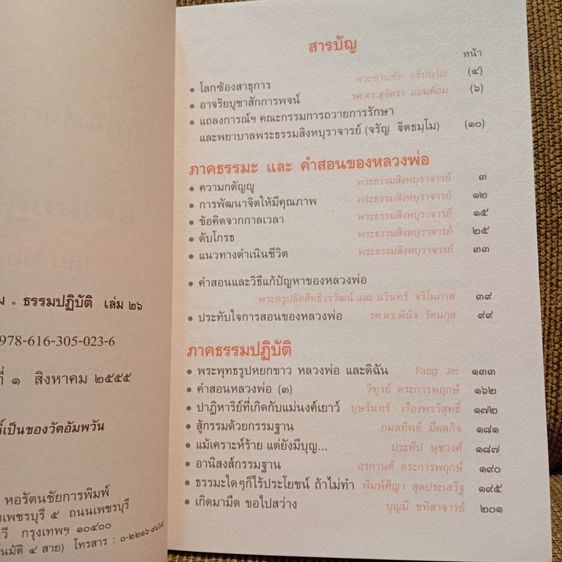 ม • ธรรมปฏิบัติ เล่ม ๒๖
978-616-305-023-6
ที่ ๑ สิงหาคม ๒๕๕๕
์เป็นของวัดอัมพวัน
หอรัตนชัยการพิมพ์
มเพชรบุรี ๕ ถนนเพชรบุรี
วี กรุงเทพฯ ๑๐๔๐๐
นมัติ ๔ สาย) โทรสาร :
สารบัญ
หน้า
• โลกซ้องสาธุการ พระชาญชัย อธิปญฺโญ (๔)
• อาจริยบูชาสักการพจน์ รศ.ดร.สุจิตรา อ่อนค้อม (๖)
• แถลงการณ์ฯ คณะกรรมการถวายการรักษา
และพยาบาลพระธรรมสิงหบุราจารย์ (จรัญ ฐิตธมฺโม) (๑๐)
ภาคธรรมะ และ คำสอนของหลวงพ่อ
• ความกตัญญู พระธรรมสิงหบุราจารย์ ๓
• การพัฒนาจิตให้มีคุณภาพ พระธรรมสิงหบุราจารย์ ๑๒
• ข้อคิดจากกาลเวลา พระธรรมสิงหบุราจารย์ ๑๕
• ดับโกรธ พระธรรมสิงหบุราจารย์ ๒๕
• แนวทางดำเนินชีวิต พระธรรมสิงหบุราจารย์ ๓๓
• คำสอนและวิธีแก้ปัญหาของหลวงพ่อ
พระครูปลัดสิทธิวรวัฒน์ และ นวินทร์ จริโมภาส ๓๙
• ประทับใจการสอนของหลวงพ่อ รศ.ดร.พินิจ รัตนกุล ๙๙
ภาคธรรมปฏิบัติ
• พระพุทธรูปหยกขาว หลวงพ่อ และดิฉัน Fang Jei ๑๓๓
• คำสอนหลวงพ่อ (๓) วิฑูรย์ ตระการพฤกษ์ ๑๖๒
• ปาฏิหาริย์ที่เกิดกับแม่นงค์เยาว์ บุษรินทร์ เรืองพรวิสุทธิ์ ๑๗๒
• สู้กรรมด้วยกรรมฐาน กมลทิพย์ มีผลกิจ ๑๘๑
• แม้เคราะห์ร้าย แต่ยังมีบุญ... ประทีป นุชวงศ์ ๑๘๗
• อานิสงส์กรรมฐาน อรกานต์ ตระการพฤกษ์ ๑๙๐
• ธรรมะใดๆก็ไร้ประโยชน์ ถ้าไม่ทำ พิมพ์ศิญา สุดประเสริฐ ๑๙๕
• เกิดมามืด ขอไปสว่าง บุญมี ชทิสาจารย์ ๒๐๑